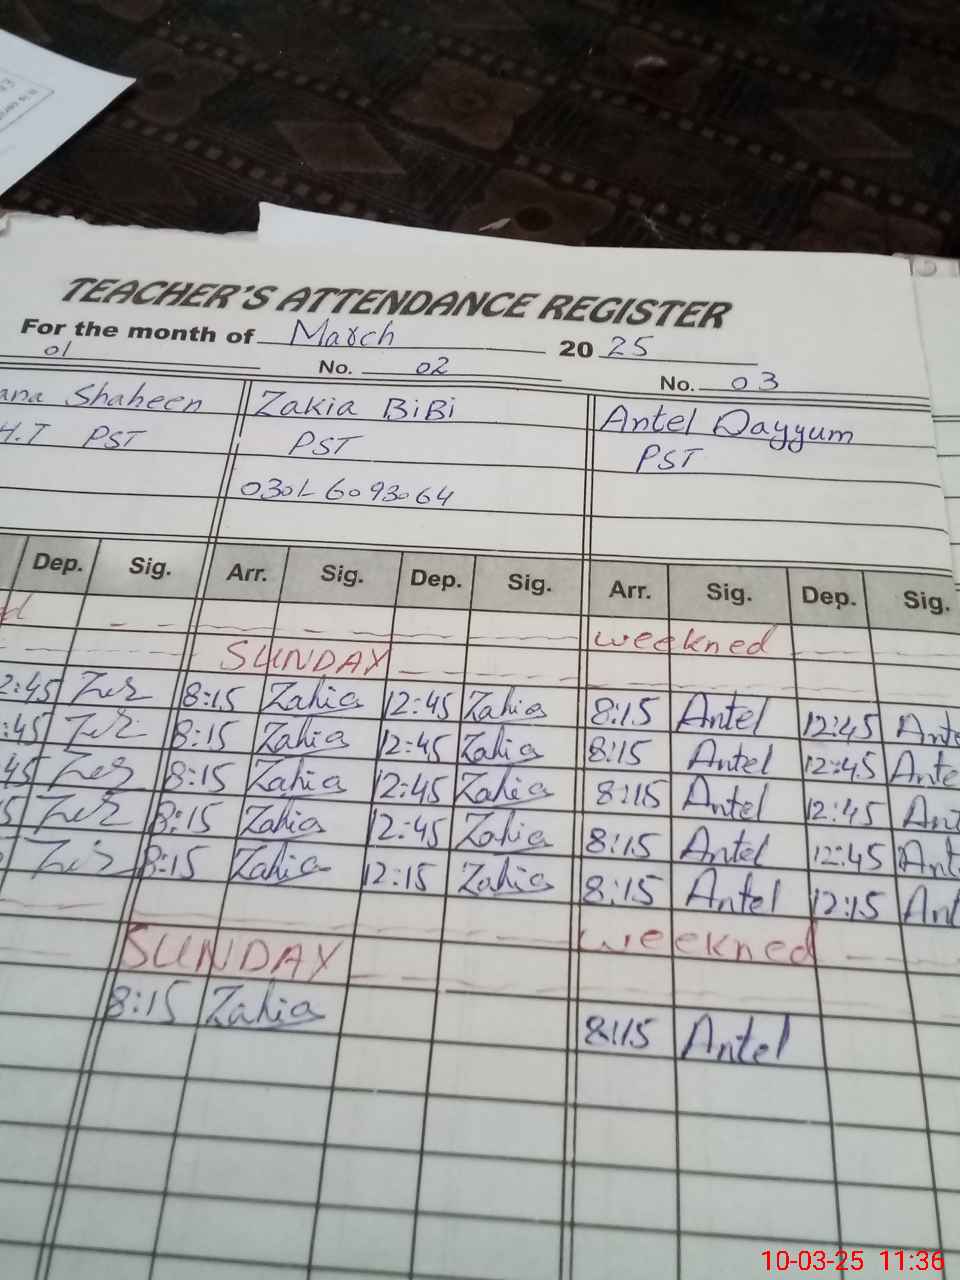 TEACHER'S ATTENDANCE REGISTER
For the month of March 2025
01 No. 02 No. 03
ana Shaheen Zakia BiBi Antel Qayyum
H.T PST PST PST
0301-6093064
Dep. Sig. Arr. Sig. Dep. Sig. Arr. Sig. Dep. Sig.
ed weekned
SUNDAY
2:45 8:15 Zakia 12:45 Zakia 8:15 Antel 12:45 Ante
:45 8:15 Zakia 12:45 Zakia 8:15 Antel 12:45 Ante
45 8:15 Zakia 12:45 Zakia 8:15 Antel 12:45 Ant
5 8:15 Zakia 12:45 Zakia 8:15 Antel 12:45 Ant
8:15 Zakia 12:15 Zakia 8:15 Antel 12:15 Ant
SUNDAY weekned
8:15 Zakia 8:15 Antel
10-03-25 11:36